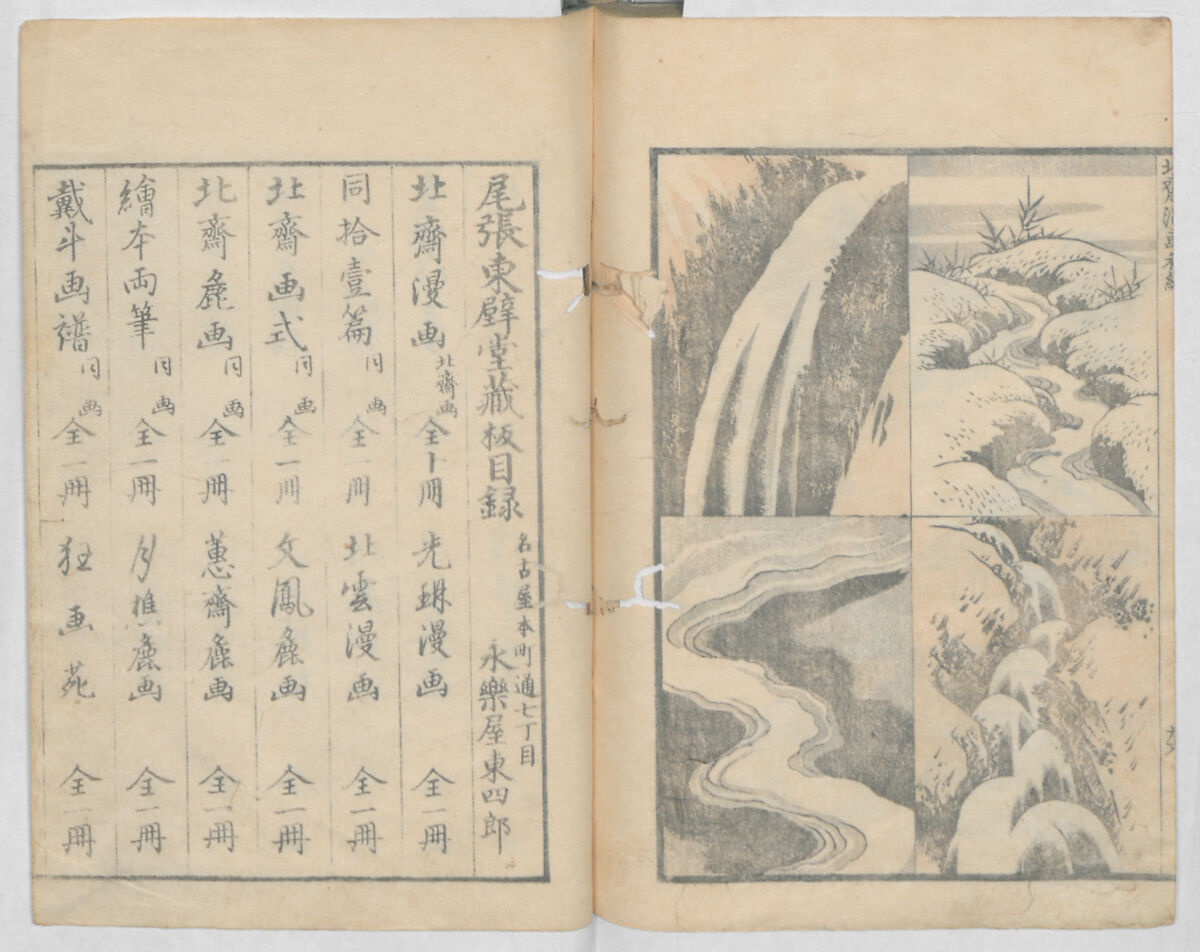 尾張東壁堂藏板目録
名古屋本町通七丁目
永樂屋東四郎
北齋漫画 北齋画 全十冊
光琳漫画 全一冊
同拾壹篇 同画 全一冊
北雲漫画 全一冊
北齋画式 同画 全一冊
文鳳麁画 全一冊
北齋麁画 同画 全一冊
蕙齋麁画 全一冊
繪本両筆 同画 全一冊
月樵麁画 全一冊
戴斗画譜 同画 全一冊
狂画苑 全一冊